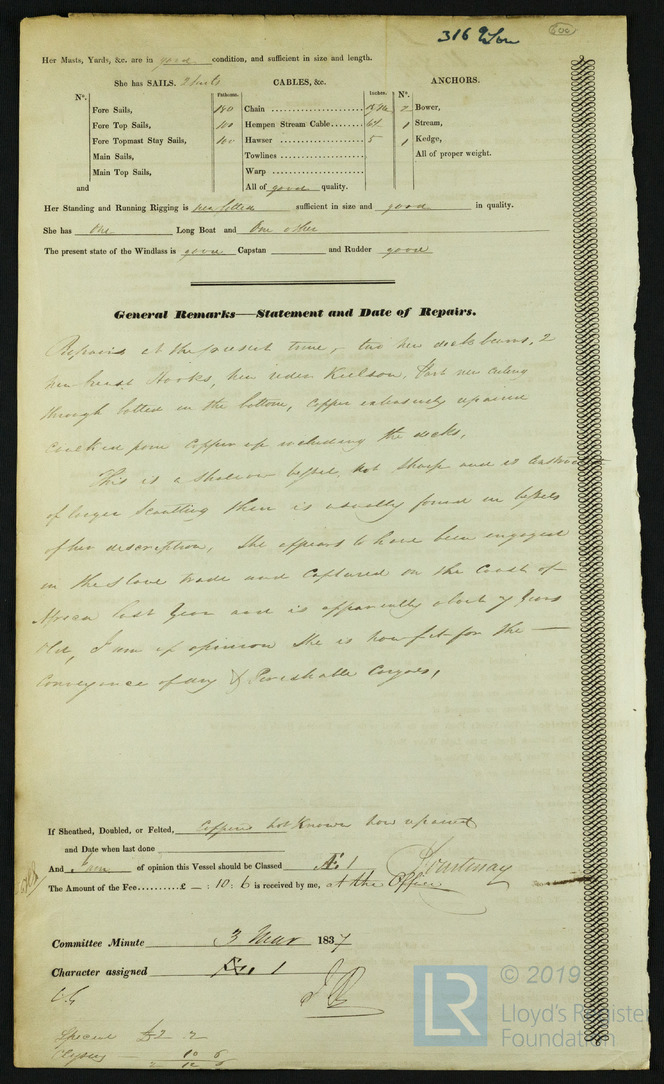 316
606
Her Masts, Yards, &c. are in good condition, and sufficient in size and length.
She has SAILS. 2 suits CABLES, &c. ANCHORS.
Nº. Fathoms. Inches. Nº.
Fore Sails, 180 Chain 2 Bower,
Fore Top Sails, 100 Hempen Stream Cable 1 Stream,
Fore Topmast Stay Sails, 100 Hawser 5 1 Kedge,
Main Sails, Towlines All of proper weight.
Main Top Sails, Warp
and All of good quality.
Her Standing and Running Rigging is new fitted sufficient in size and good in quality.
She has One Long Boat and One other
The present state of the Windlass is good Capstan and Rudder good
General Remarks—Statement and Date of Repairs.
Repairs at the present time, two new deck beams, 2
new breast Hooks, new rider Kielson, Part new ceiling
through bolted in the bottom, Copper extensively repaired
Caulked from Copper up including the decks,
This is a shallow beſsel not sharp and is
of larger Scantling then is usually found in veſsels
of her description, She appears to have been engaged
in the Slave trade and Captured on the Coast of
Africa last Year and is apparently about 7 Years
Old, I am of opinion She is now fit for the —
Conveyance of dry & Perishable Cargoes,
If Sheathed, Doubled, or Felted, Coppered not Known now repaired
and Date when last done
And I am of opinion this Vessel should be Classed Æ 1 Courtenay
The Amount of the Fee.......... £ — : 10 : 6 is received by me, at the Office
Committee Minute 3 Mar 1837
Character assigned Æ 1
Special £2 2
10 6
2 12 6
LR © 2019
Lloyd's Register
Foundation